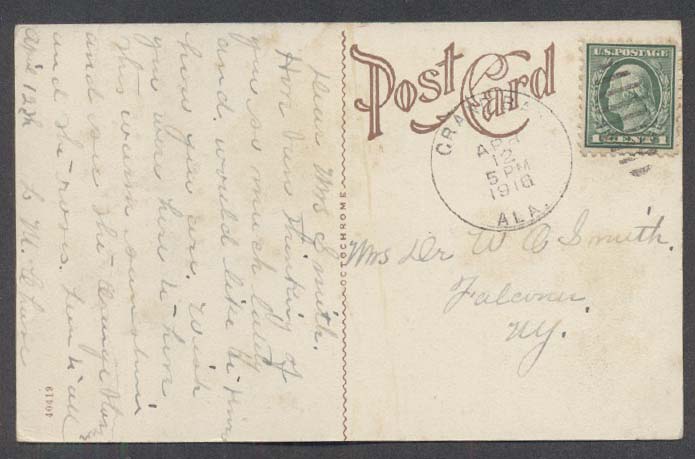 Post Card
U.S. POSTAGE
1 CENT
APR
12
5 PM
1916
ALA.
OCTOCHROME
Mrs Dr W C Smith.
Falconer
N.Y.
Dear Mrs Smith.
Hon Ivan Thinking of
you so much lately
and would like to
how you are. Wish
you were here to
this warm sunshine
and see the Orange
and the roses. Love to all
April 12th